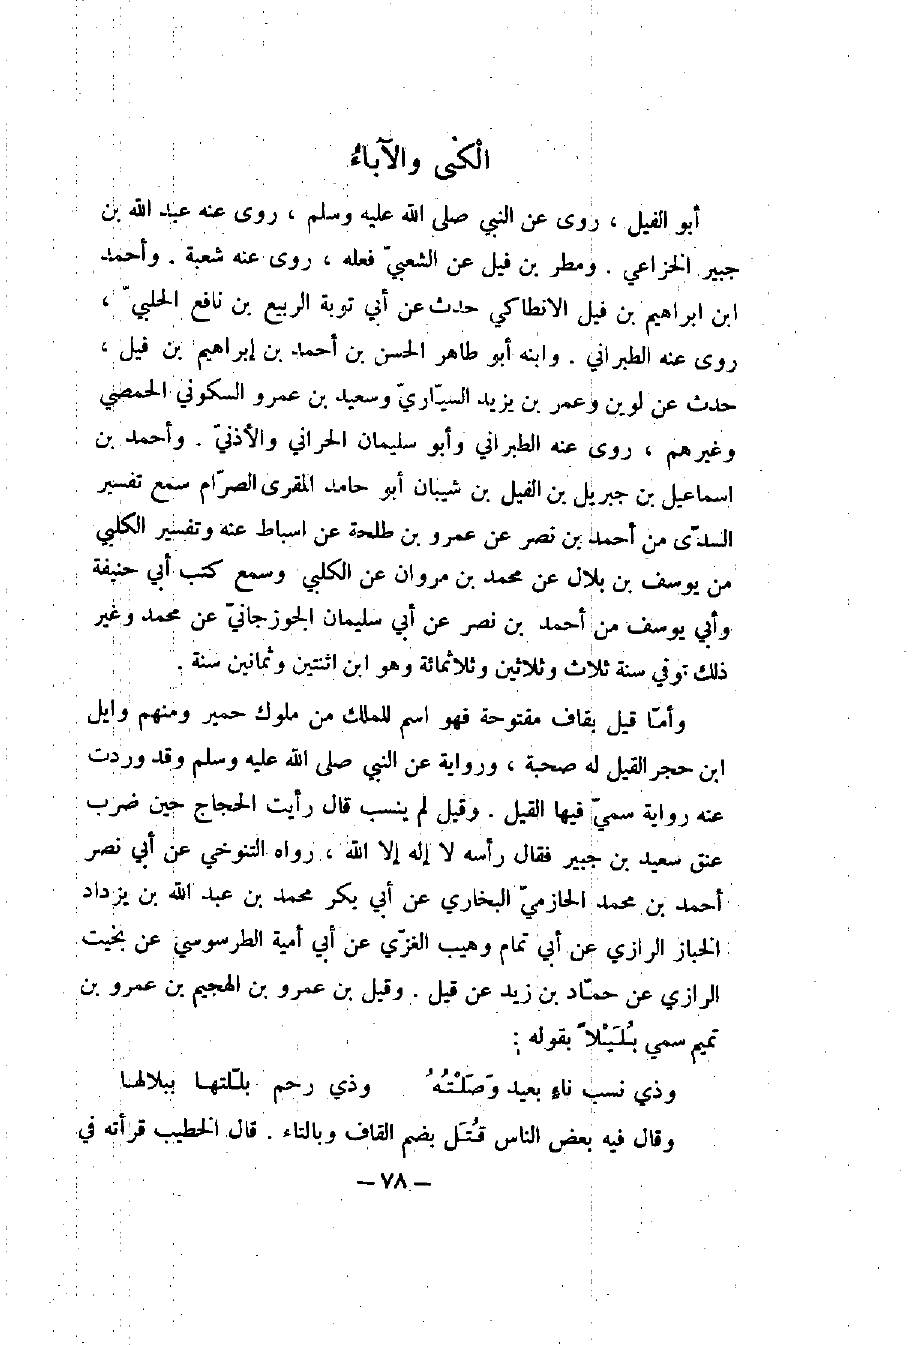 الكنى والآباء
أبو الفيل ، روى عن النبي صلى الله عليه وسلم ، روى عنه عبد الله بن
جبير الخزاعي . ومطر بن فيل عن الشعبيّ فعله ، روى عنه شعبة . وأحمد
ابن ابراهيم بن فيل الانطاكي حدث عن أبي توبة الربيع بن نافع الحلبيّ ،
روى عنه الطبراني . وابنه أبو طاهر الحسن بن أحمد بن إبراهيم بن فيل ،
حدث عن لوين وعمر بن يزيد السيّاريّ وسعيد بن عمرو السكوني الحمصي
وغيرهم ، روى عنه الطبراني وأبو سليمان الحراني والأذنيّ . وأحمد بن
اسماعيل بن جبريل بن الفيل بن شيبان أبو حامد المقرى الصرّام سمع تفسير
السدّى من أحمد بن نصر عن عمرو بن طلحة عن اسباط عنه وتفسير الكلبي
من يوسف بن بلال عن محمد بن مروان عن الكلبي وسمع كتب أبي حنيفة
وأبي يوسف من أحمد بن نصر عن أبي سليمان الجوزجانيّ عن محمد وغير
ذلك توفي سنة ثلاث وثلاثين وثلاثمائة وهو ابن اثنتين وثمانين سنة .
وأمّا قيل بقاف مفتوحة فهو اسم للملك من ملوك حمير ومنهم وايل
ابن حجر القيل له صحبة ، ورواية عن النبي صلى الله عليه وسلم وقد وردت
عنه رواية سميّ فيها القيل . وقيل لم ينسب قال رأيت الحجاج حين ضرب
عنق سعيد بن جبير فقال رأسه لا إله إلا الله ، رواه التنوخي عن أبي نصر
أحمد بن محمد الحازميّ البخاري عن أبي بكر محمد بن عبد الله بن يزداد
الخباز الرازي عن أبي تمام وهيب الغزّي عن أبي أمية الطرسوسي عن بخيت
الرازي عن حمّاد بن زيد عن قيل . وقيل بن عمرو بن الهجيم بن عمرو بن
تميم سمي بُلَيْلاً بقوله :
وذي نسب ناء بعيد وَصَلْتُهُ وذي رحم بلّلتها ببلالها
وقال فيه بعض الناس قُتَل بضم القاف وبالتاء . قال الخطيب قرأته في
— ٧٨ —